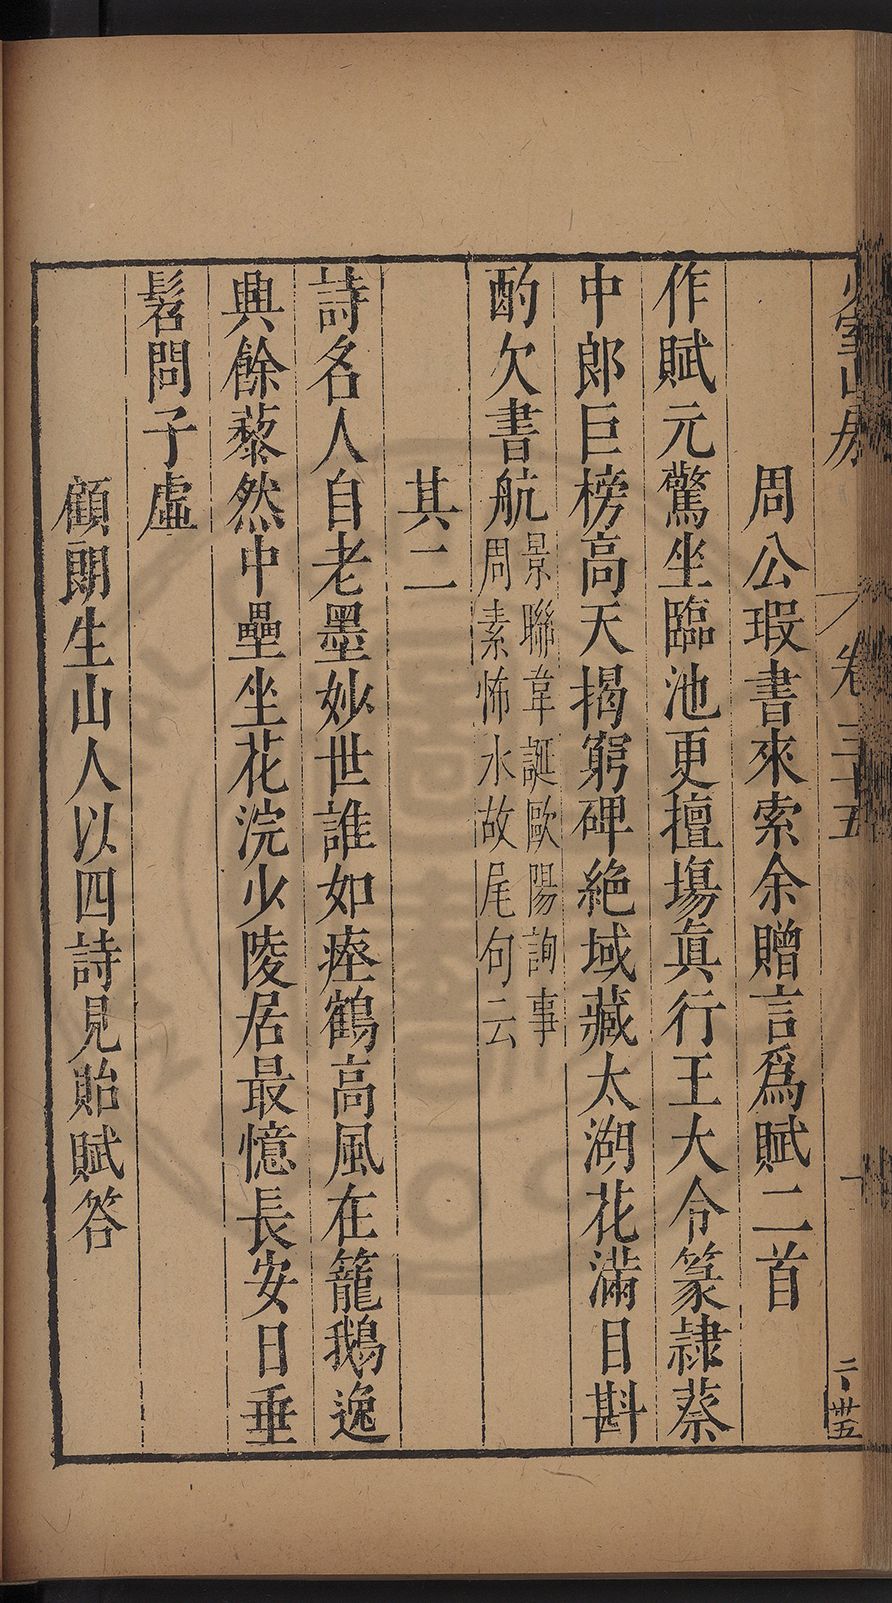 少室山房
卷三十五
一
二
卅五
周公瑕書來索余贈言爲賦二首
作賦元驚坐臨池更擅塲眞行王大令篆隷蔡
中郎巨榜高天揭窮碑絶域藏太湖花滿目斟
酌欠書航景聯韋誕歐陽詢事
周素怖水故尾句云
其二
詩名人自老墨妙世誰如瘞鶴高風在籠鵝逸
興餘藜然中壘坐花浣少陵居最憶長安日垂
髫問子虛
顧朗生山人以四詩見貽賦答